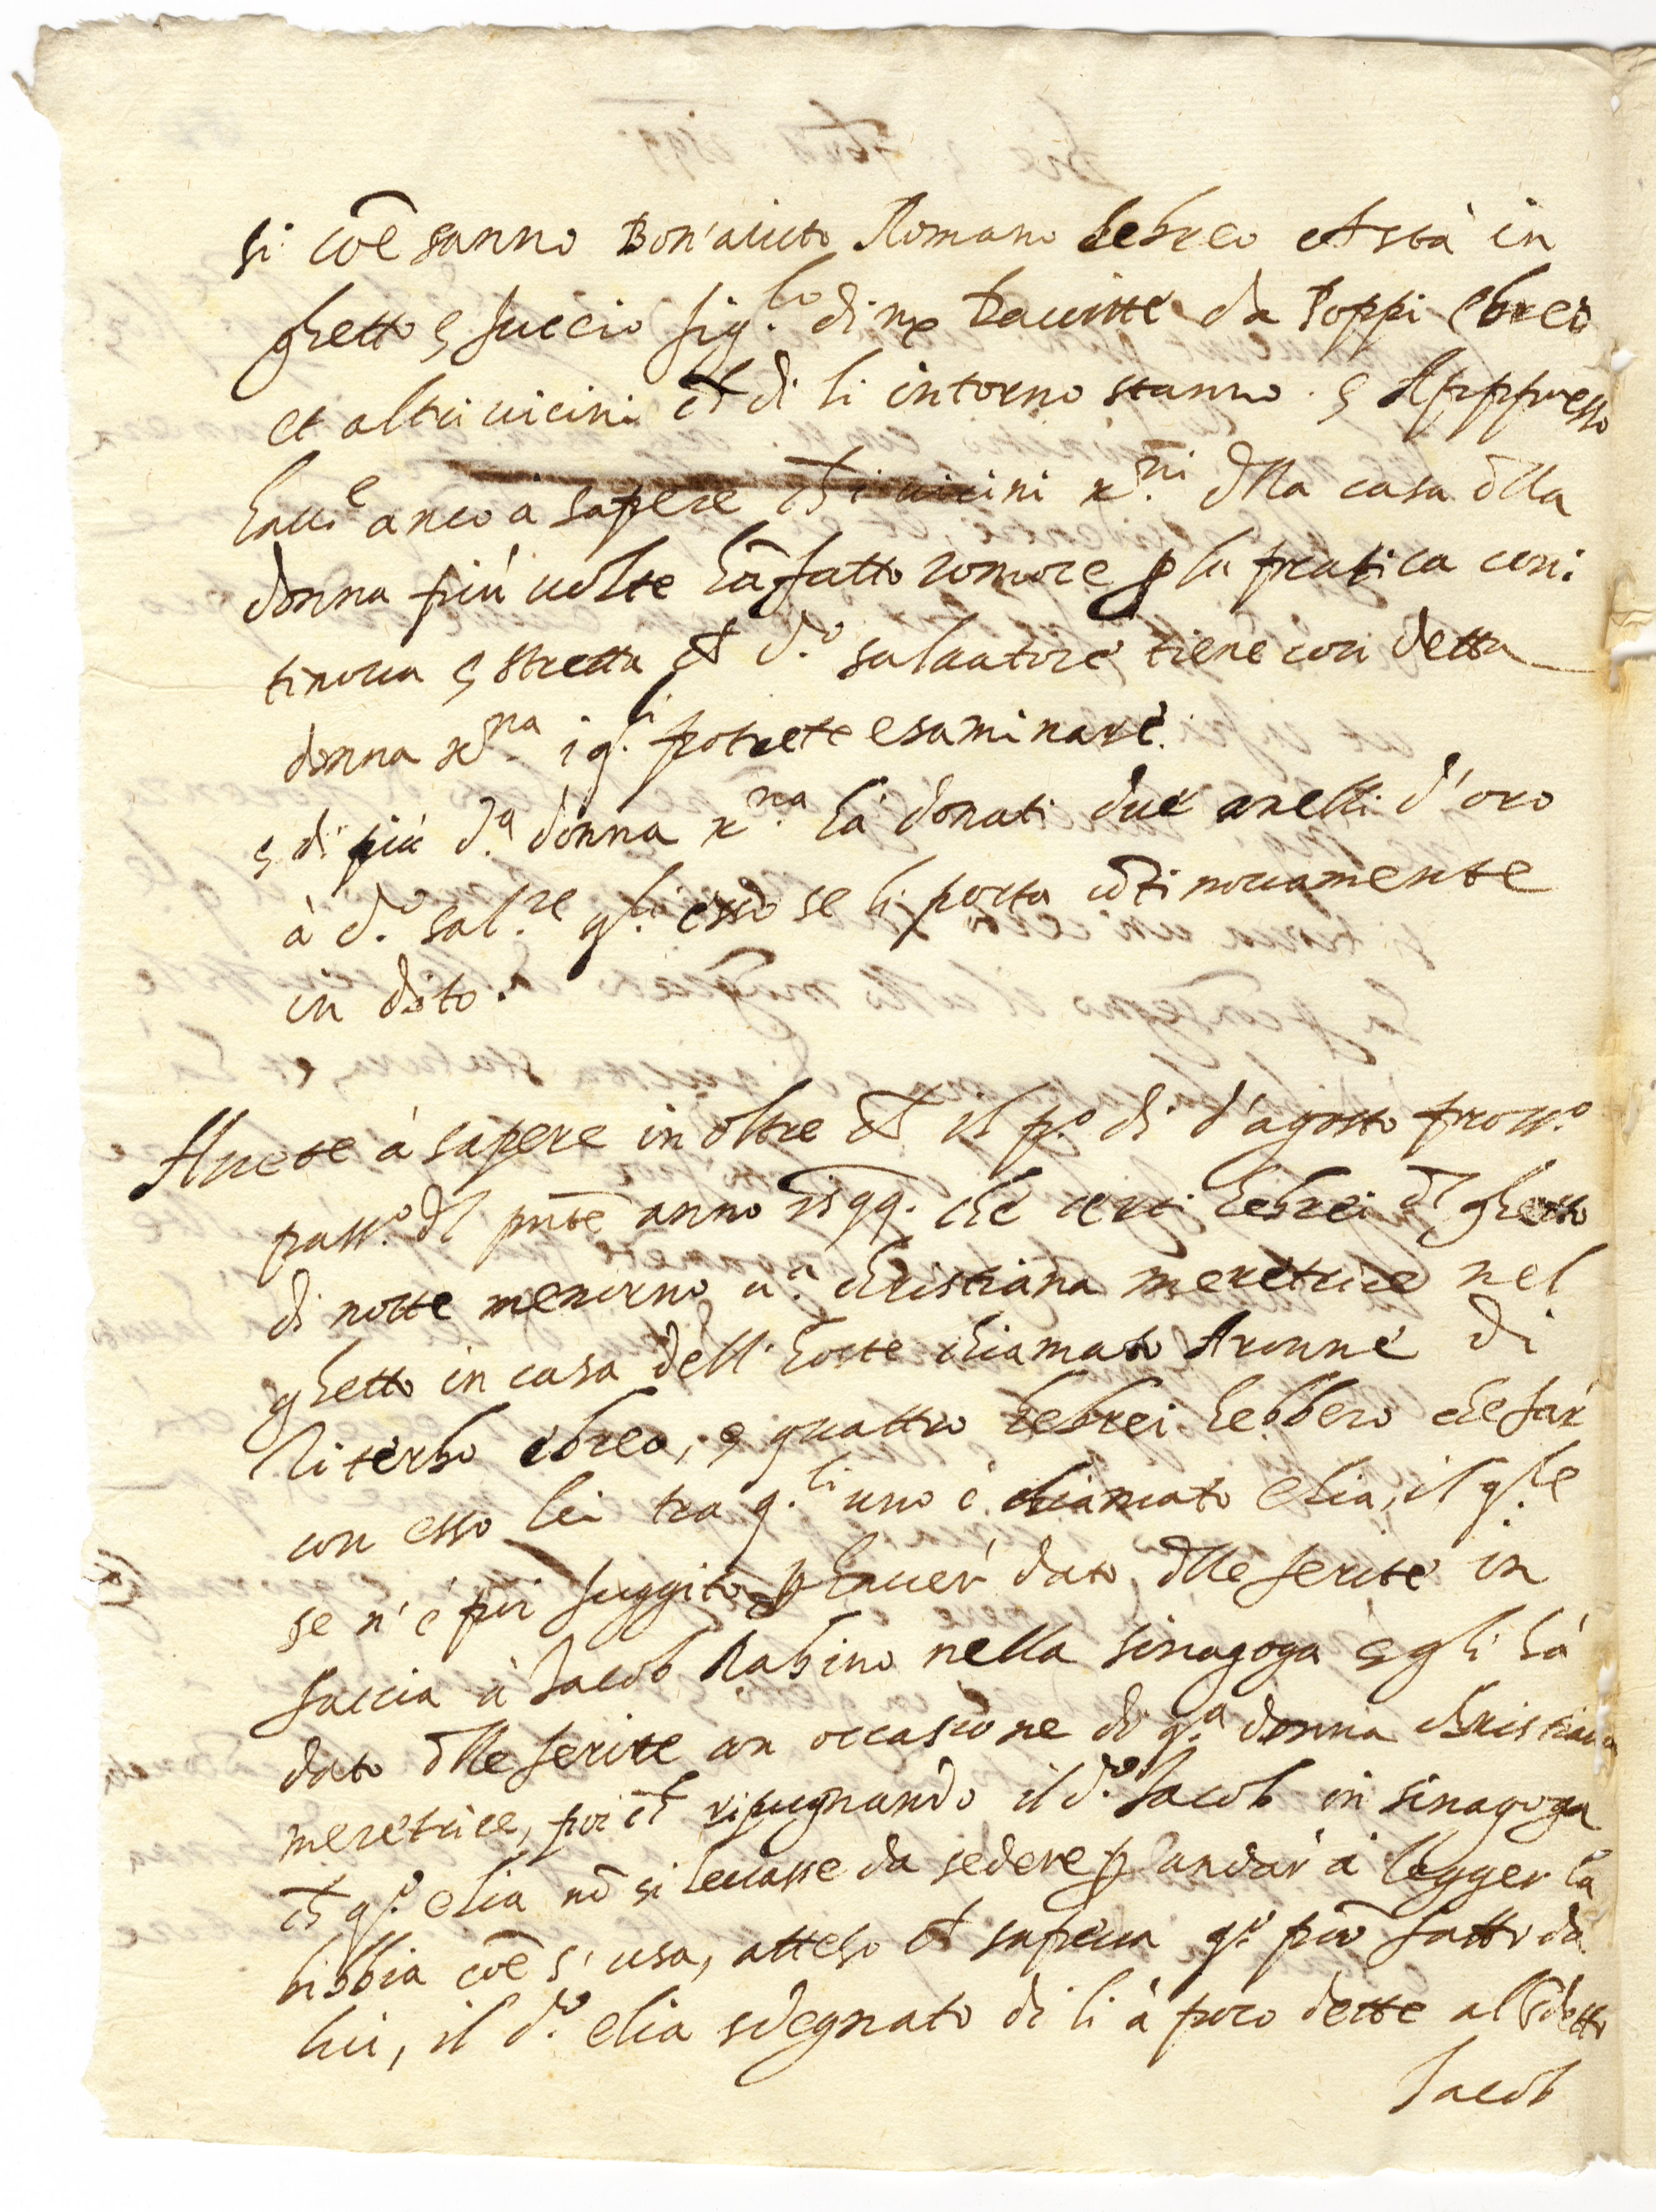 si coē sanno Bon'aiuto Romano hebreo ch stà in
ghetto e succio fig.lo di m Dauitte da Poppi ebreo
et altri uicini ch di li intorno stanno. e Apppresso
haue anco à sapere ch i uicini xni dlla casa dlla
donna più uolte hā fatto romore p la pratica con:
tinoua e stretta ch d.o saluatore tiene con detta
donna xna i q.li potrete esaminare.
e di più d.a donna xna hà donati due anelli d'oro
à d.o sal.re q.li esso se li porta cōtinouamente
in dito.
Auete à sapere in oltre ch il p.o di d'agosto pross.o
pass.o dl pnte anno 1599. che certi hebrei dl ghetto
di notte menorno u.a christiana meretrice nel
ghetto in casa dell'hoste chiamato Aronne di
Viterbo ebreo, e quattro hebrei hebbero che far
con esso lei tra q.li uno è chiamato elia, il q.le
se n'è poi fuggito p hauer dato dlle ferite in
faccia à Jacob Rabino nella sinagoga e gli hà
dato dlle ferite con occasione di q.a donna christiana
meretrice, poi ch ripugnando il d.o Jacob in sinagoga
ch q.o elia nō si leuasse da sedere p andar à legger la
bibbia coē s'usa, atteso ch sapeua q.o fatto da
lui, il d.o elia sdegnato di li à poco dette al detto
Jacob